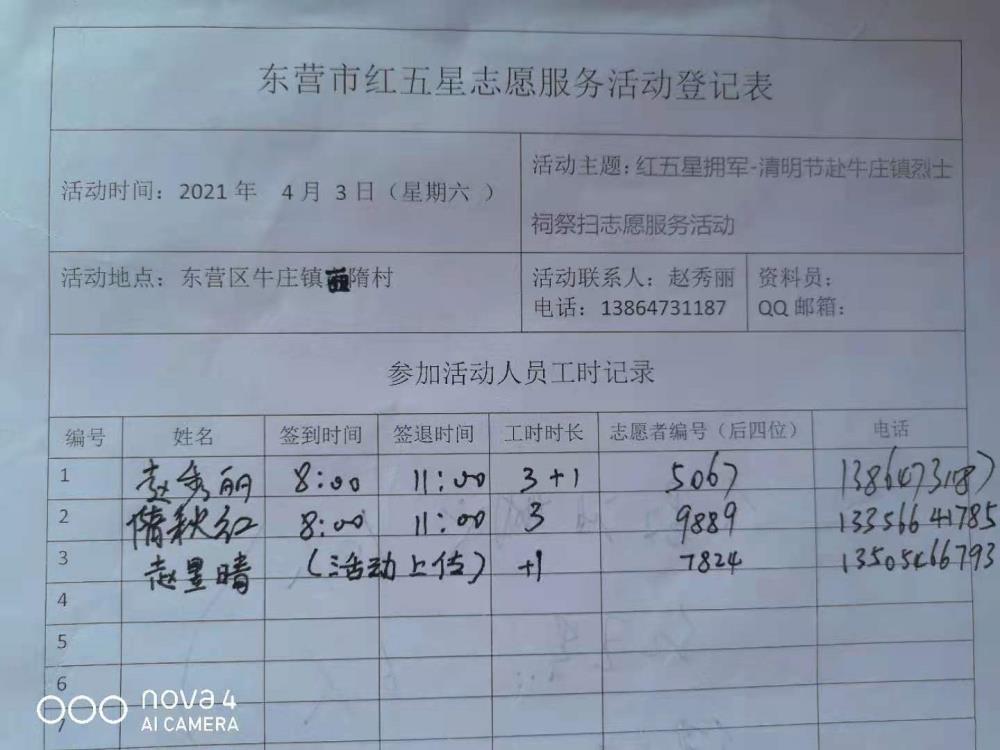 东营市红五星志愿服务活动登记表
活动时间：2021年 4月 3日（星期六 ）
活动主题：红五星拥军-清明节赴牛庄镇烈士
祠祭扫志愿服务活动
活动地点：东营区牛庄镇隋村
活动联系人：赵秀丽
电话：13864731187
资料员：
QQ邮箱：
参加活动人员工时记录
编号 姓名 签到时间 签退时间 工时时长 志愿者编号（后四位） 电话
1 赵秀丽 8:00 11:00 3+1 5067 13864731187
2 隋秋红 8:00 11:00 3 9889 13356641785
3 赵昱晴 （活动上传） +1 7824 13505466793
4
5
6
7
nova 4
AI CAMERA